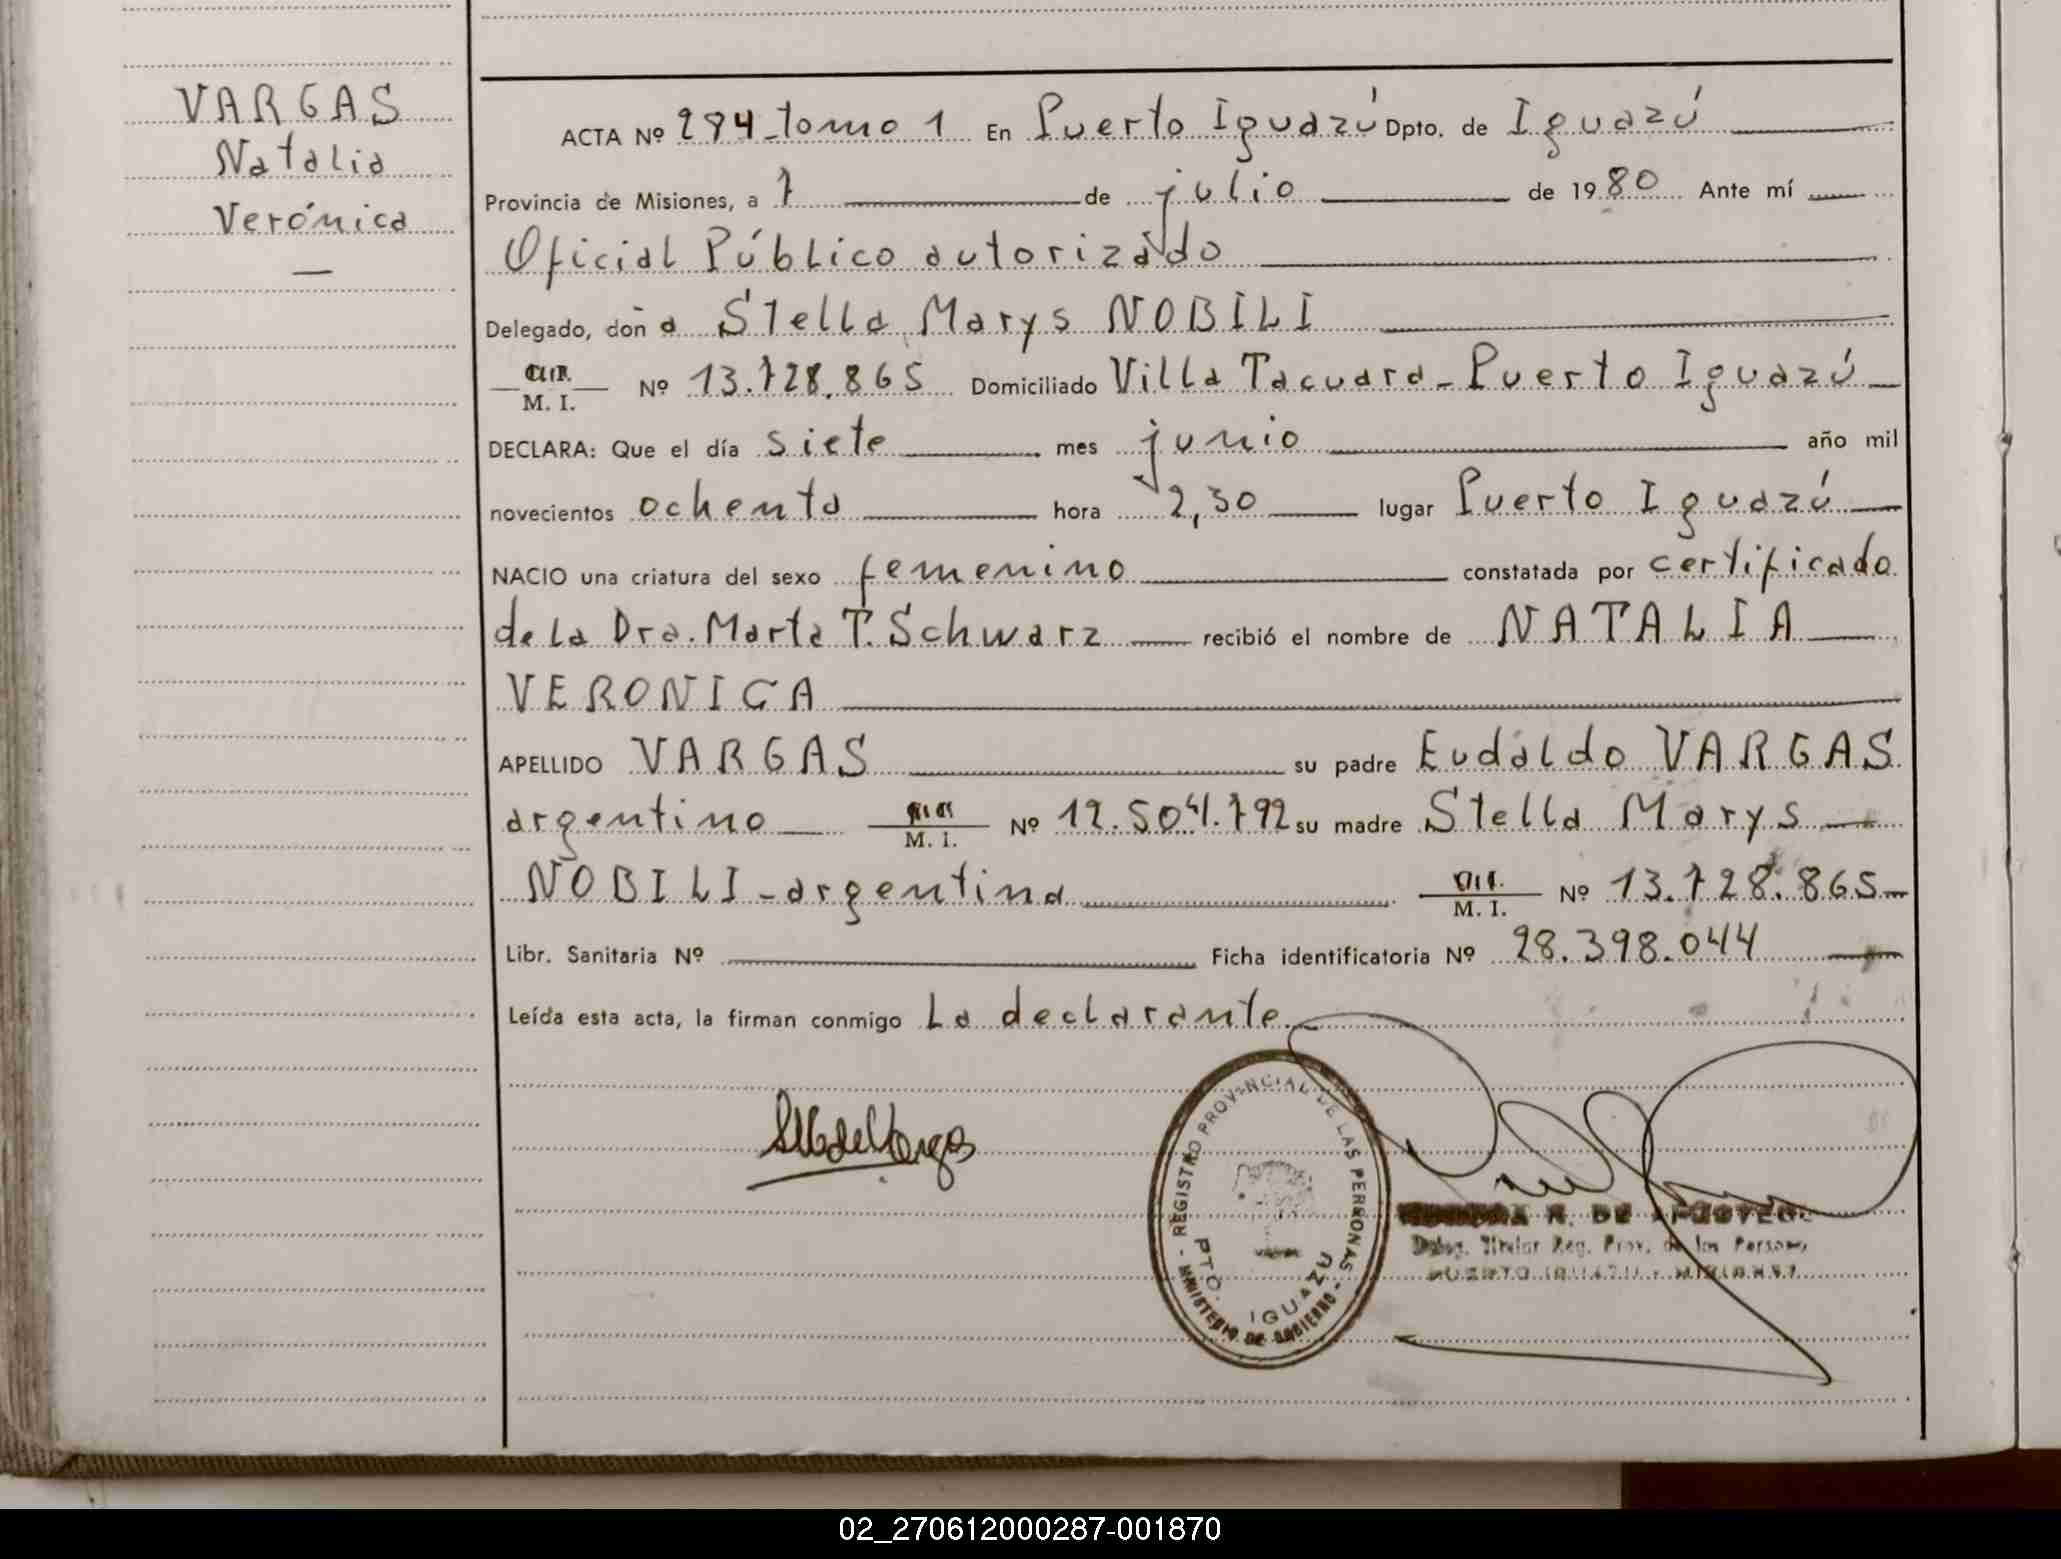 VARGAS
Natalia
Verónica
—
ACTA Nº 294 - tomo 1 En Puerto Iguazú Dpto. de Iguazú
Provincia de Misiones, a 7 de julio de 1980 Ante mí
Oficial Público autorizado
Delegado, doña Stella Marys NOBILI
M. I. Nº 13.728.865 Domiciliado Villa Tacuara - Puerto Iguazú
DECLARA: Que el día siete mes junio año mil
novecientos ochenta hora 2,30 lugar Puerto Iguazú
NACIO una criatura del sexo femenino constatada por certificado
de la Dra. Marta T. Schwarz recibió el nombre de NATALIA
VERONICA
APELLIDO VARGAS su padre Eudaldo VARGAS
argentino M. I. Nº 12.504.792 su madre Stella Marys
NOBILI - argentina M. I. Nº 13.728.865
Libr. Sanitaria Nº Ficha identificatoria Nº 28.398.044
Leída esta acta, la firman conmigo La declarante.
REGISTRO PROVINCIAL DE LAS PERSONAS
PTO. IGUAZU
MINISTERIO DE GOBIERNO
Deleg. Titular Reg. Prov. de las Personas
PUERTO IGUAZU - MISIONES
02_270612000287-001870